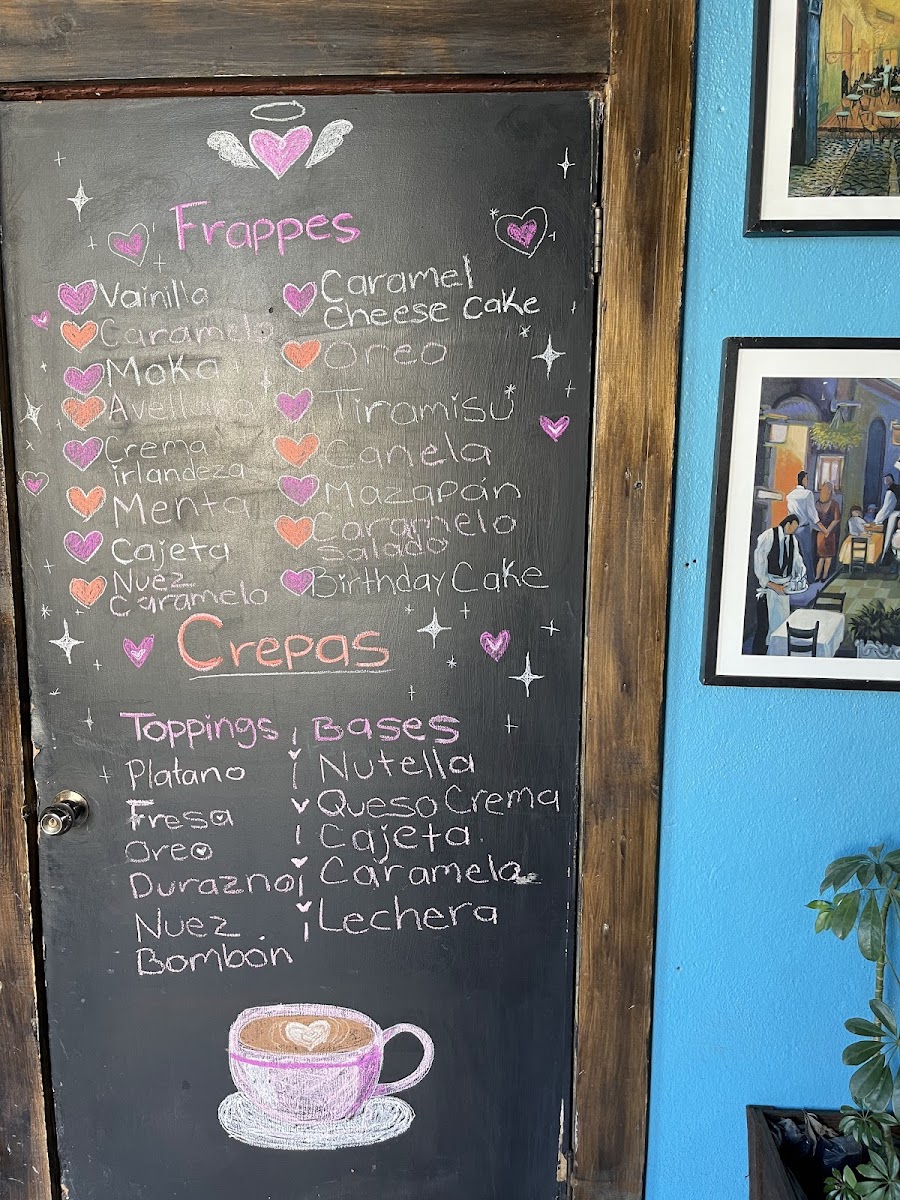 Frappes
Vainilla
Caramelo
Moka
Crema
irlandeza
Menta
Cajeta
Nuez
Caramelo
Caramel
cheese cake
Oreo
Tiramisú
Canela
Mazapán
Caramelo
Salado
Birthday Cake
Crepas
Toppings
Platano
Fresa
Oreo
Durazno
Nuez
Bombón
Bases
Nutella
Queso Crema
Cajeta
Caramelo
Lechera